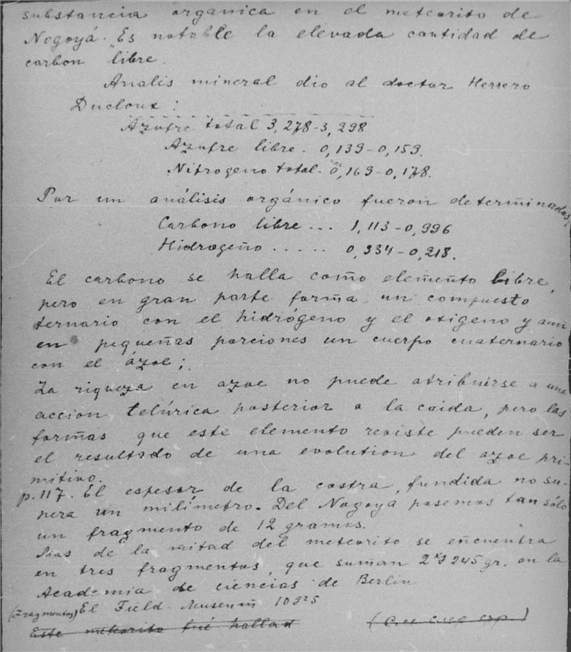 substancia orgánica en el meteorito de
Nogoyá. Es notable la elevada cantidad de
carbon libre.
Analis mineral dio al doctor Herrero
Ducloux:
Azufre total 3,278-3,298
Azufre libre. 0,139-0,159.
Nitrogeno total. 0,169-0,178.
Por un análisis orgánico fueron determinados,
Carbono libre... 1,113-0,996
Hidrogeño ..... 0,334-0,218.
El carbono se halla como elemento libre,
pero en gran parte forma un compuesto
ternario con el hidrógeno y el oxigeno y aun
en pequeñas porciones un cuerpo cuaternario
con el ázoe;
La riqueza en azoe no puede atribuirse a una
accion telúrica posterior a la caida, pero las
formas que este elemento reviste pueden ser
el resultado de una evolution del azoe pri-
mitivo.
p.117. El espesor de la costra fundida no su-
pera un milímetro. Del Nogoyá posemos tan sólo
un fragmento de 12 gramos.
Mas de la mitad del meteorito se encuentra
en tres fragmentos, que suman 2kg 245 gr. en la
Academia de ciencias de Berlin
(Fragmentos) El Field-Museum
Este meteorito fué hallad